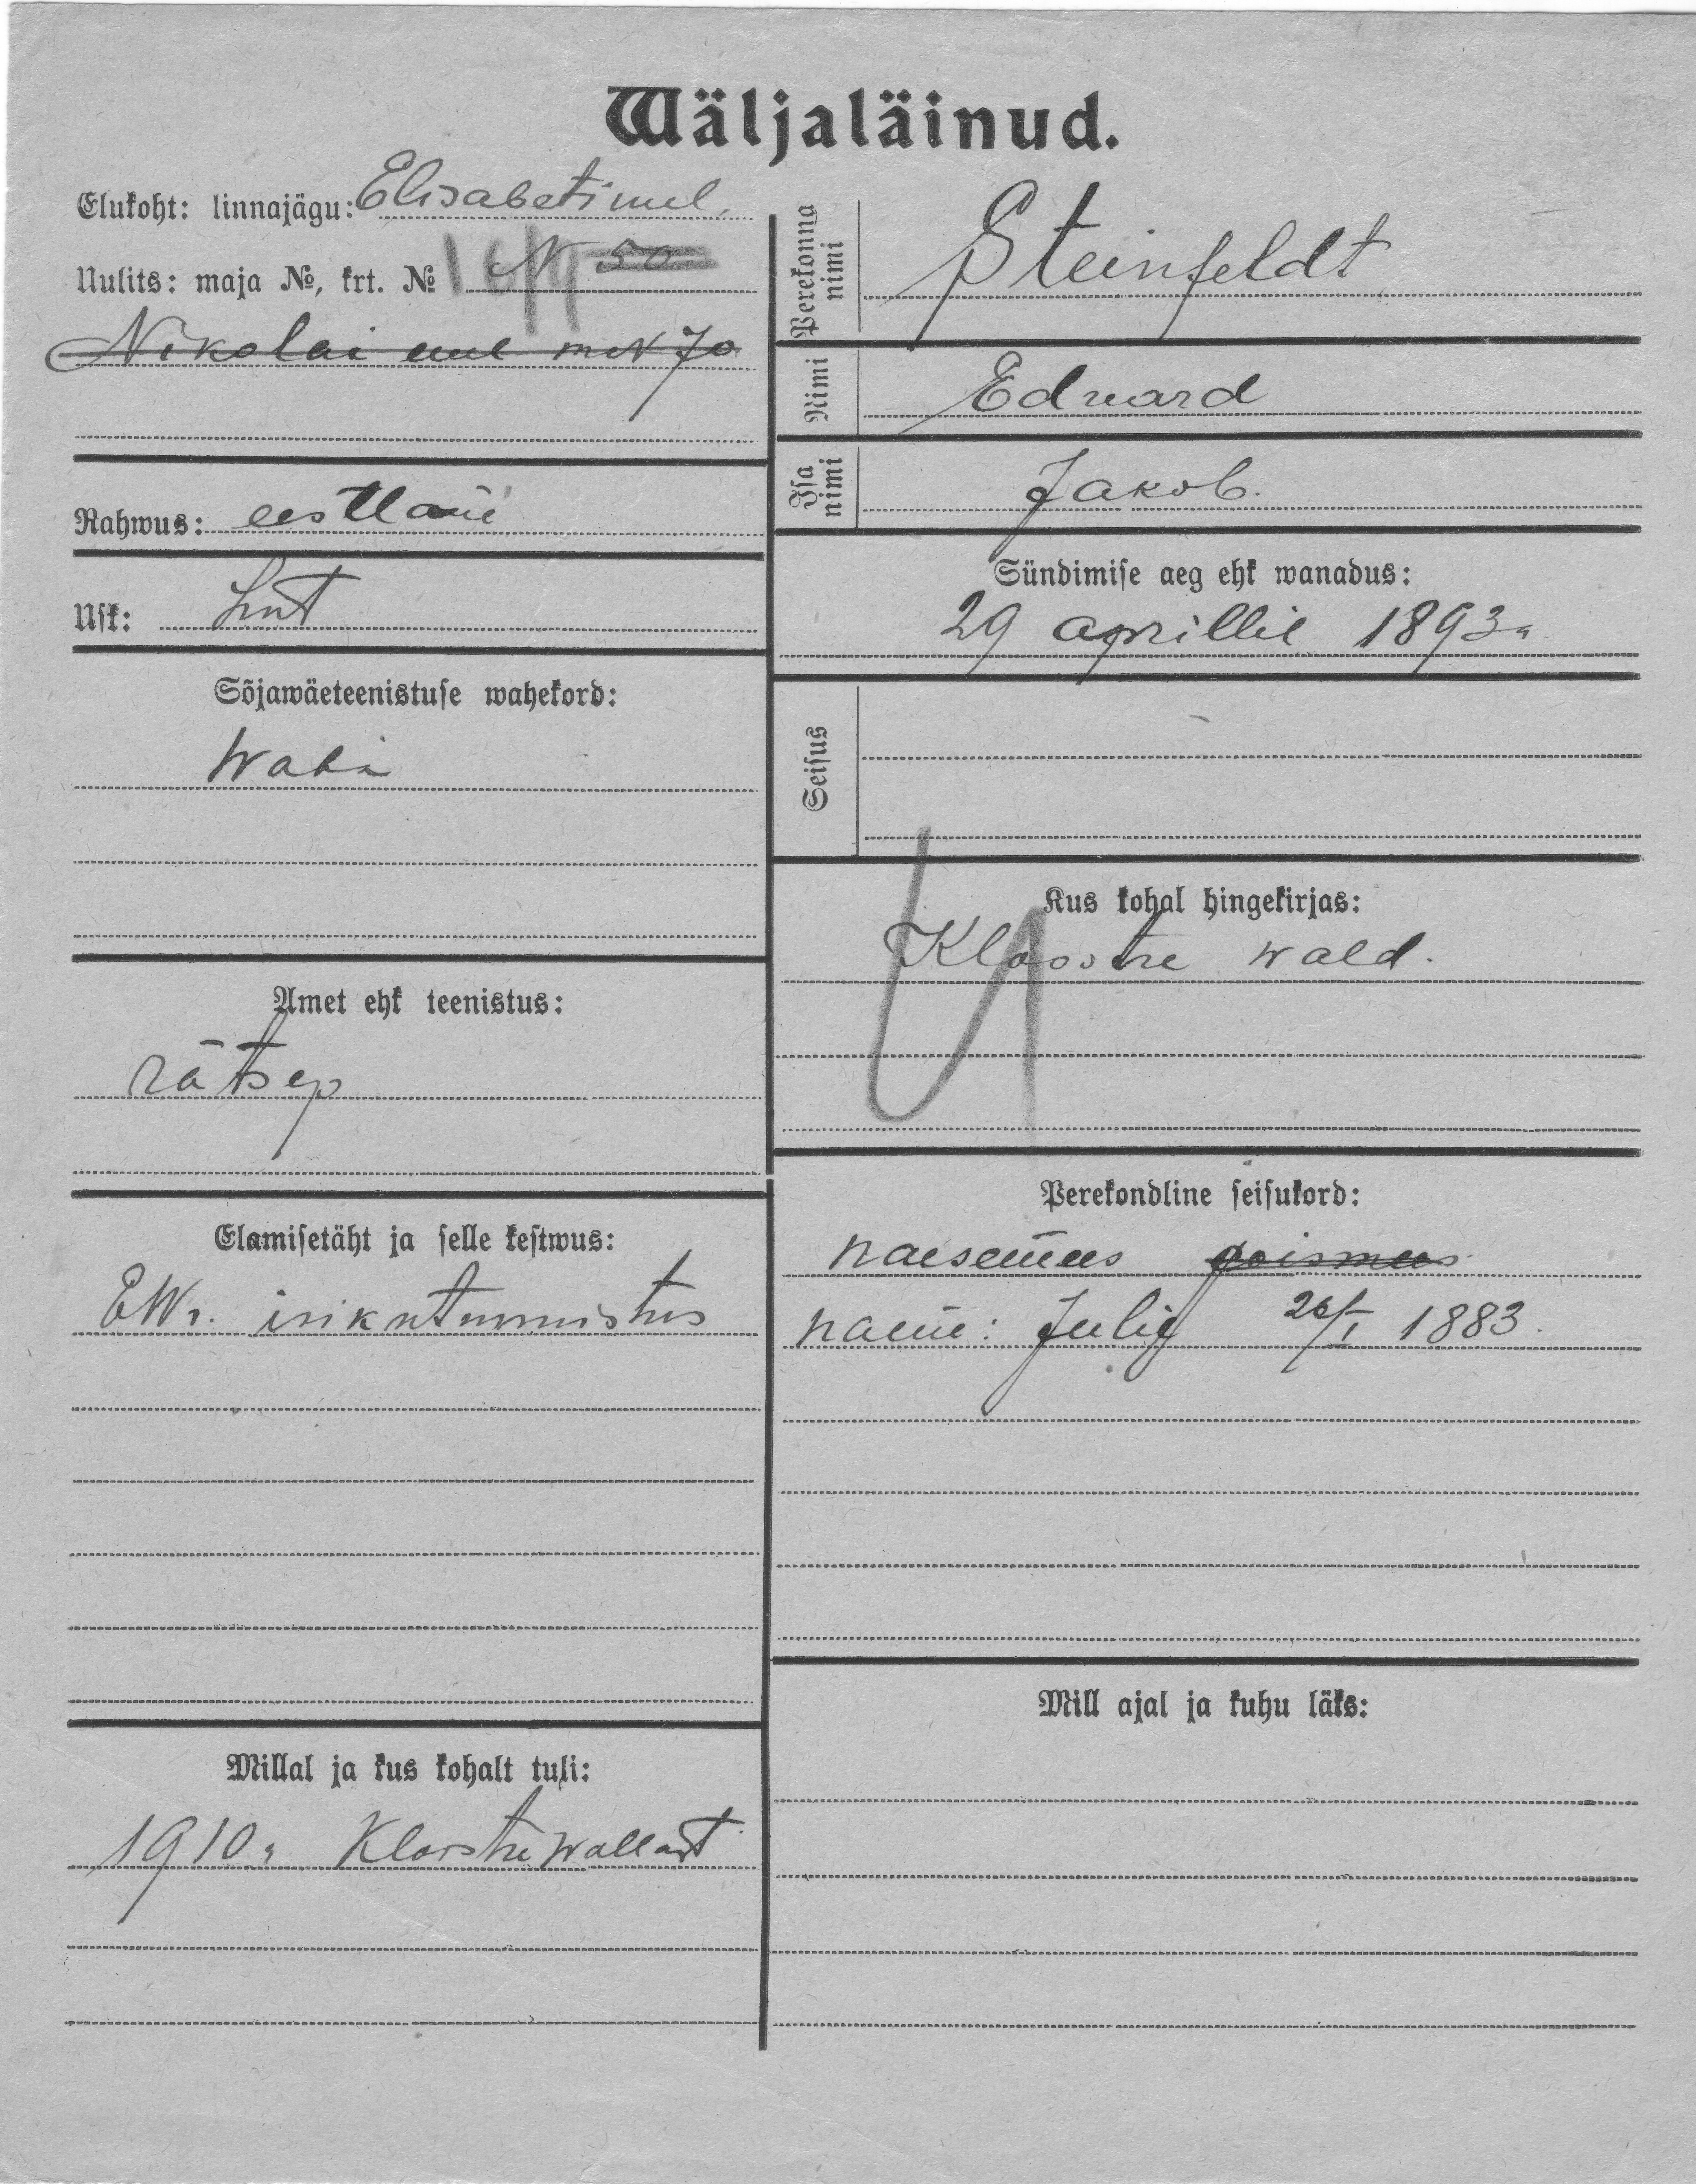 Wäljaläinud.
Elukoht: linnajägu: Elisabeti uul.
Uulits: maja №, krt. № N 50
Nikolai uul m N 70
Rahwus: eestlane
Usk: Lut
Sõjawäeteenistuse wahekord:
Waba
Amet ehk teenistus:
rätsep
Elamisetäht ja selle kestwus:
EWr. isikutunnistus
Millal ja kus kohalt tuli:
1910a Kloostri wallast
Perekonna nimi Steinfeldt
Nimi Eduard
Isa nimi Jakob.
Sündimise aeg ehk wanadus:
29 aprillil 1893a
Seisus
Kus kohal hingekirjas:
Kloostre wald.
Perekondline seisukord:
naesemees poismees
naene: Julie 26/I 1883.
Mill ajal ja kuhu läks: